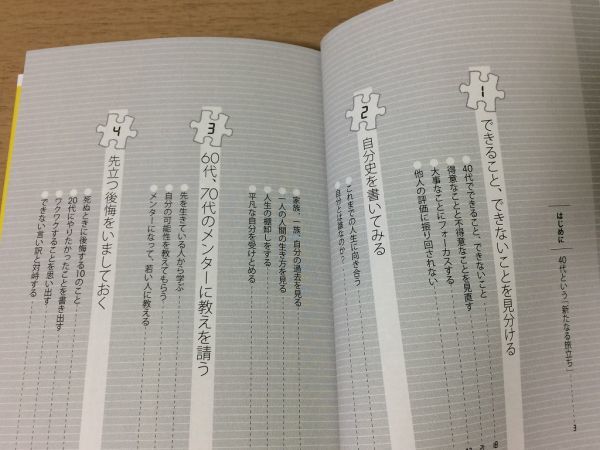 はじめに 40代という「新たなる旅立ち」 3
1
できること、できないことを見分ける
40代でできること、できないこと 18
得意なことと不得意なことを見直す
大事なことにフォーカスする
他人の評価に振り回されない
2
自分史を書いてみる
これまでの人生に向き合う
自分とは誰なのか？
家族、一族、自分の過去を見る
一人の人間の生き方を見る
人生の棚卸しをする
平凡な自分を受けとめる
3
60代、70代のメンターに教えを請う
先を生きている人から学ぶ
自分の可能性を教えてもらう
メンターになって、若い人に教える
4
先立つ後悔をいましておく
死ぬときに後悔する10のこと
20代にやりたかったことを書き出す
ワクワクすることを思い出す
できない言い訳と対峙する